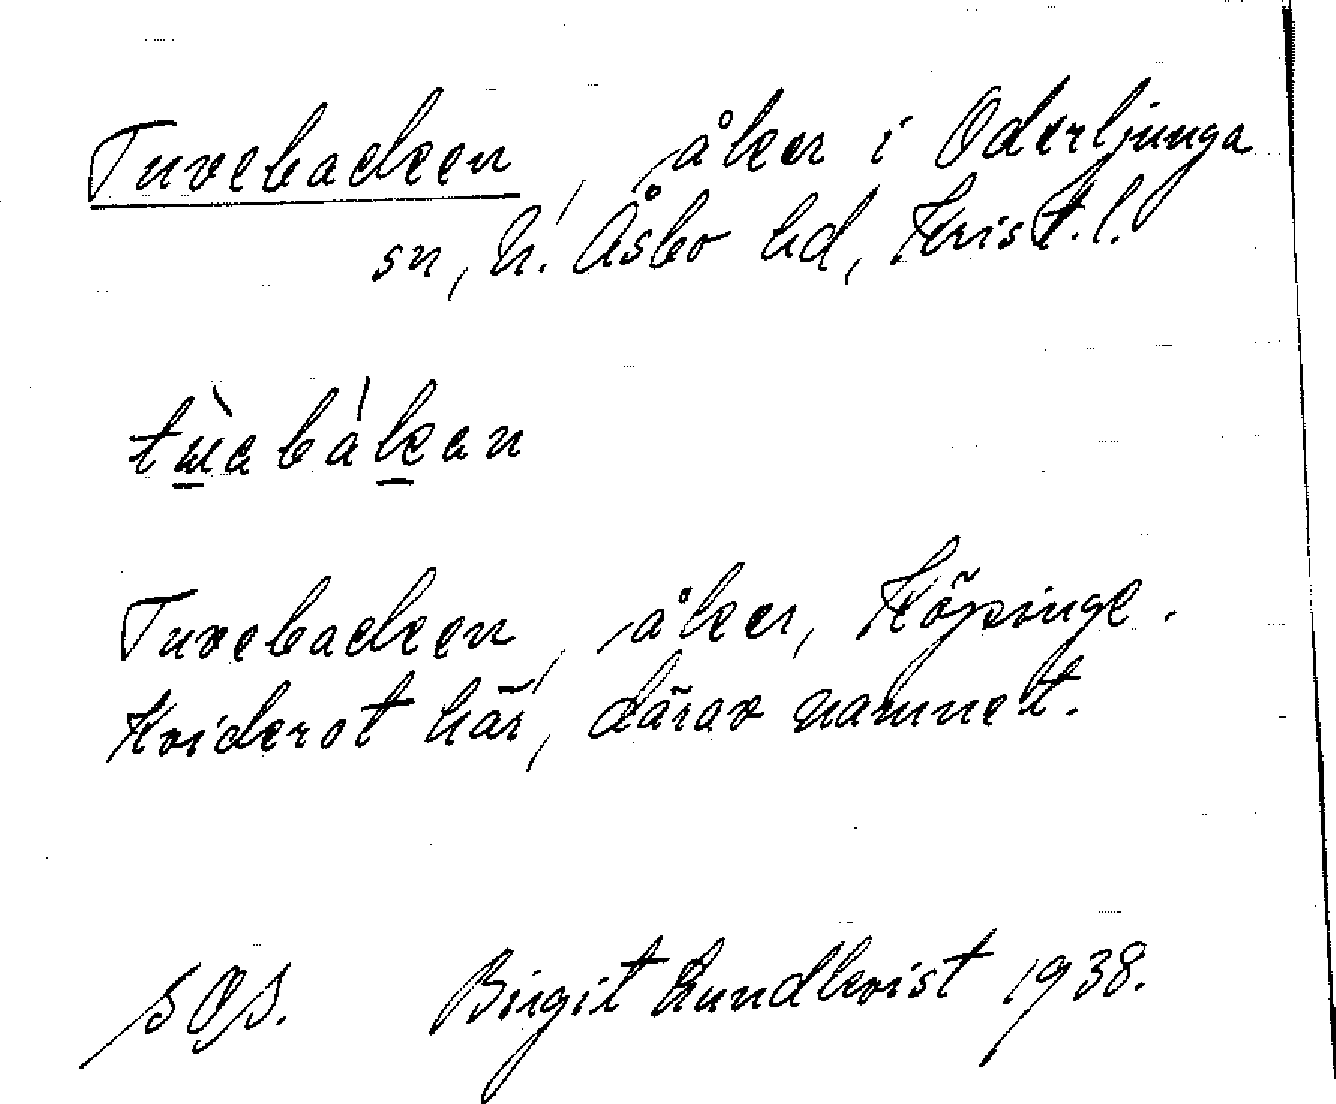 Tuvebacken, åker i Oderljunga
sn, N. Åsbo hd, Krist. l.
Tuvebacken, åker, Köpinge.
Kviderot här, därav namnet.
SOS. Birgit Lundkvist 1938.